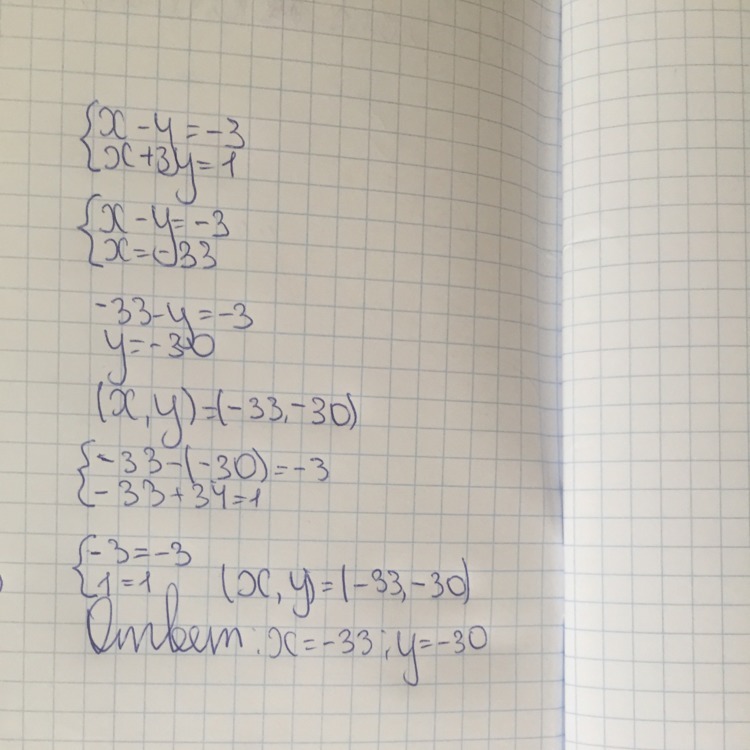 {x - y = -3
{x + 3y = 1
{x - y = -3
{x = -33
-33 - y = -3
y = -30
(x, y) = (-33, -30)
{-33 - (-30) = -3
{-33 + 34 = 1
{-3 = -3
{1 = 1 (x, y) = (-33, -30)
Ответ: x = -33; y = -30